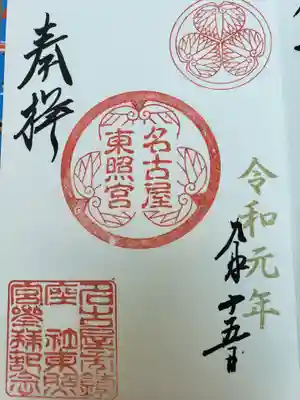 奉拝
名古屋
東照宮
令和元年
八月十五日
名古屋市鎮
座 社東照
宮參拜記念